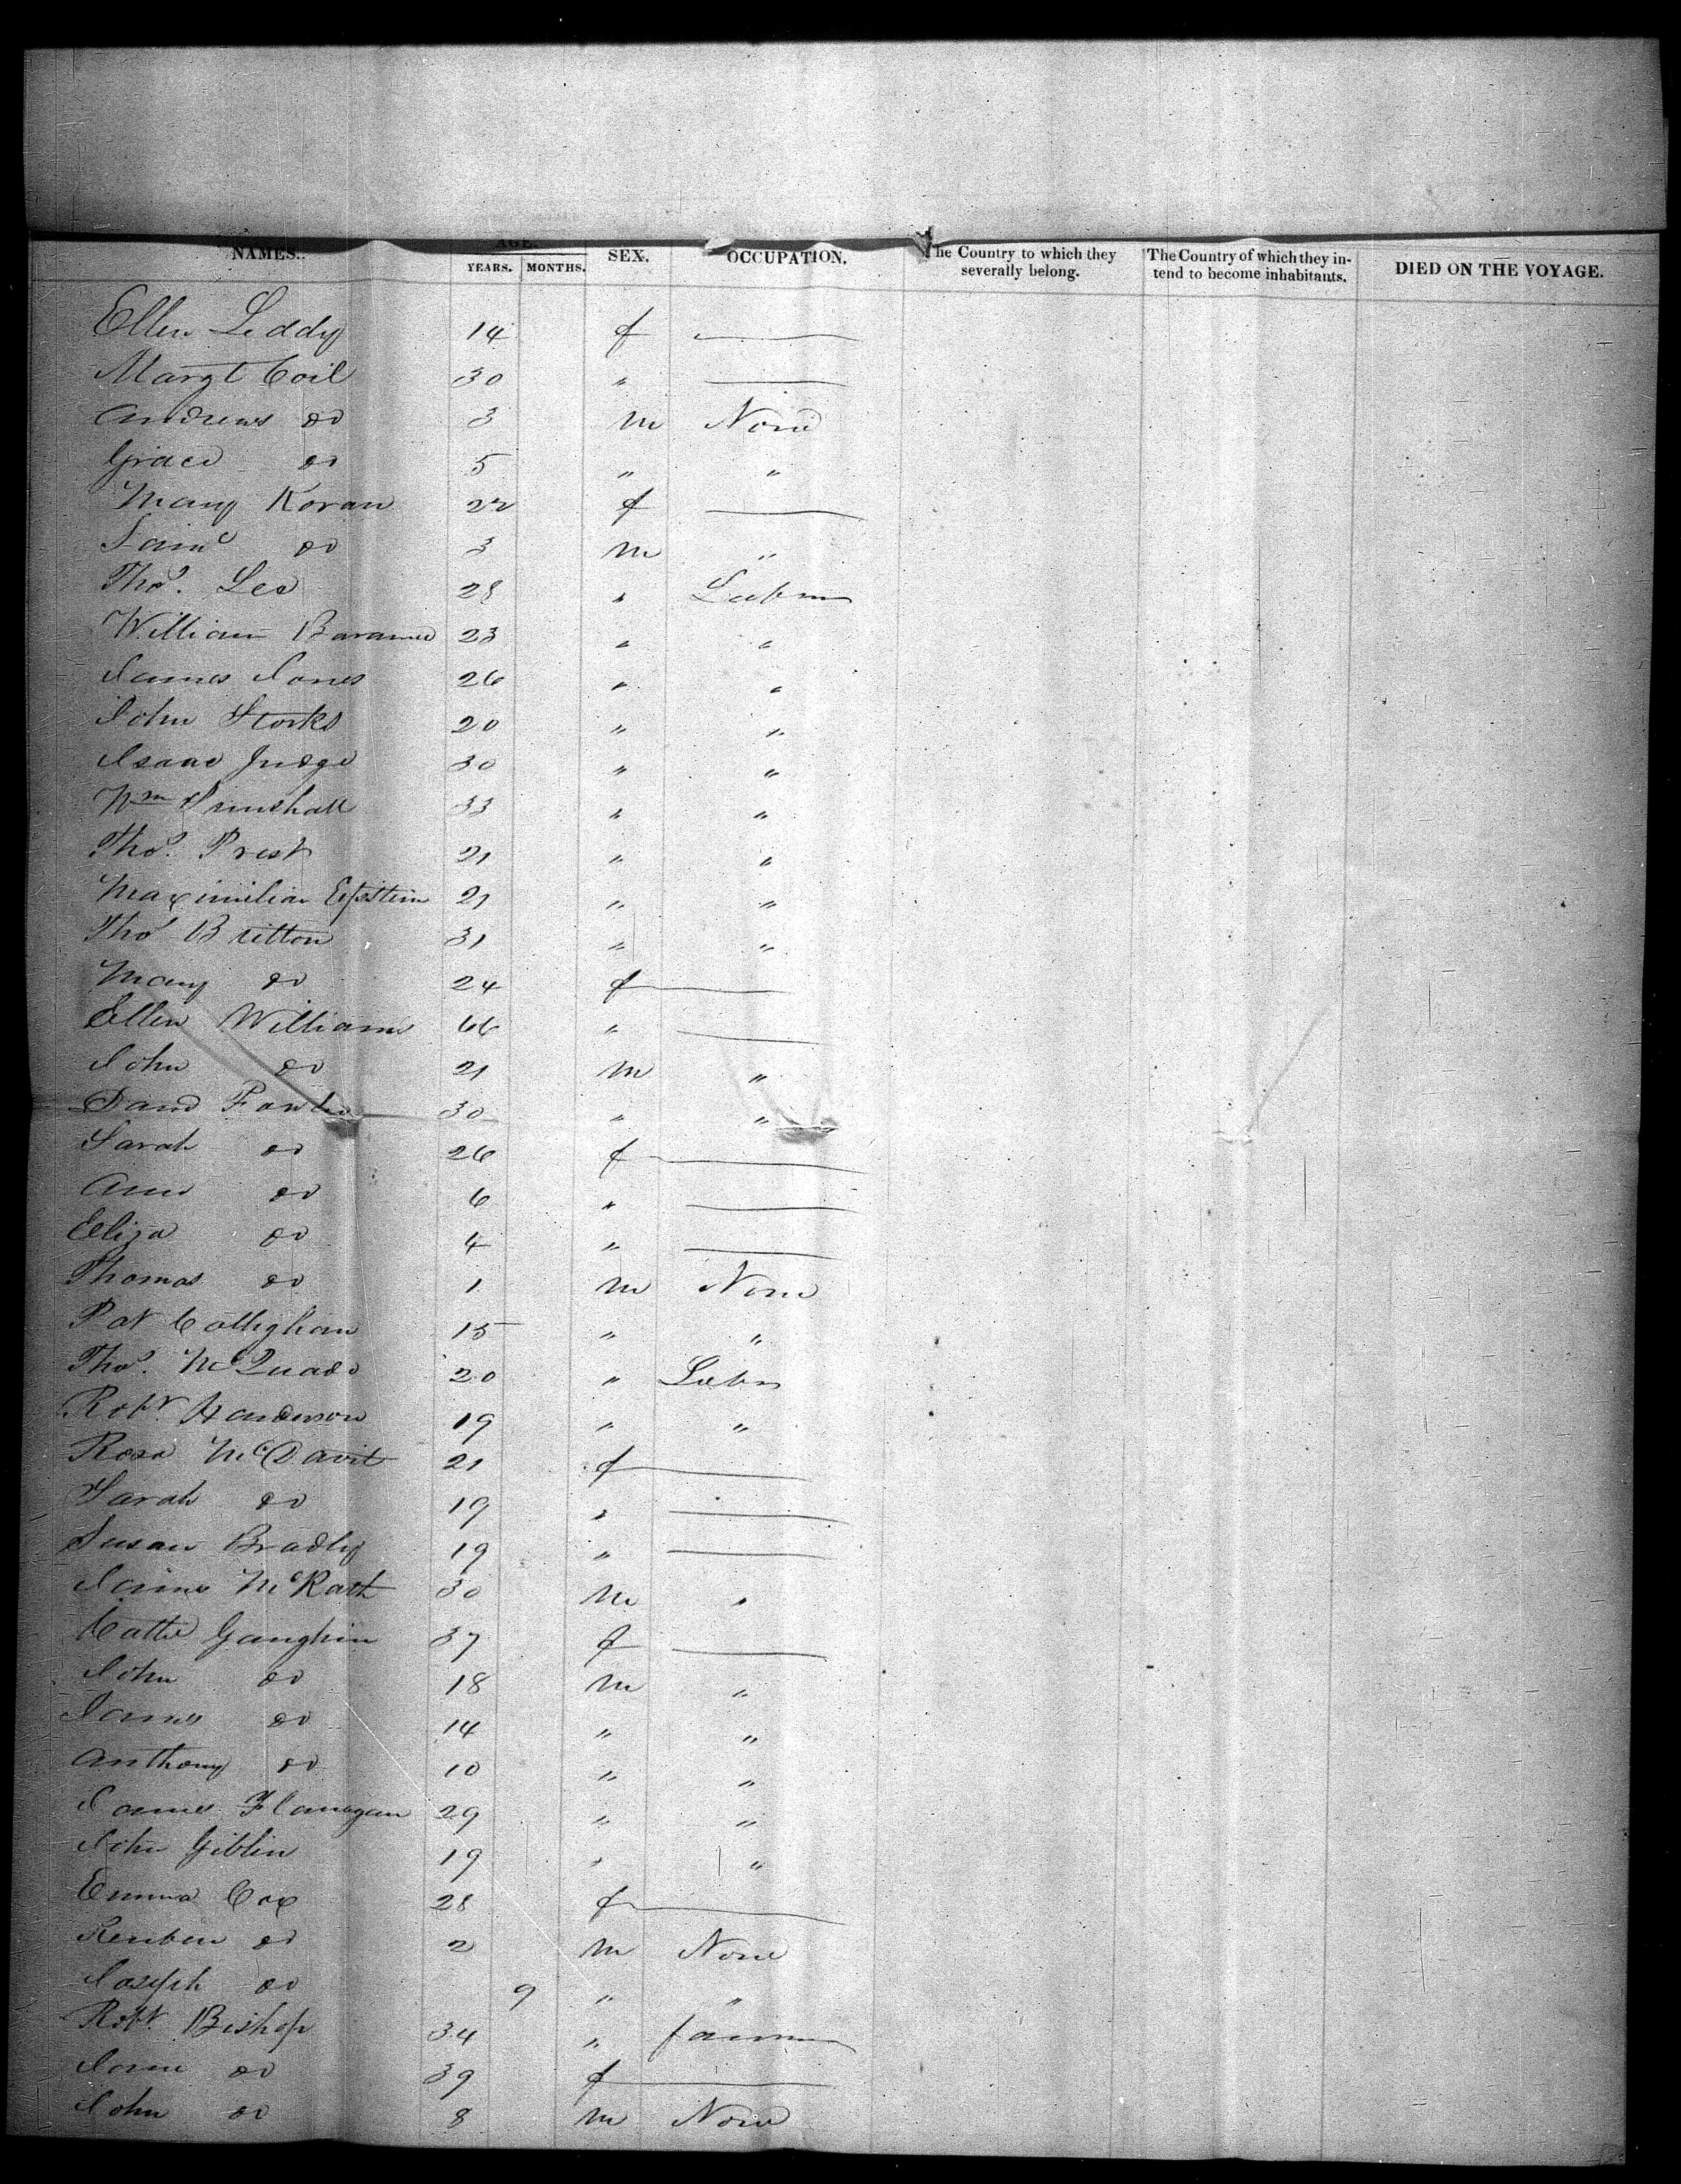 NAMES. AGE. SEX. OCCUPATION. The Country to which they severally belong. The Country of which they intend to become inhabitants. DIED ON THE VOYAGE.
YEARS. MONTHS.
Ellen Leddy 14 f
Margt Coil 30 "
Andrew do 3 m None
Grace do 5 " "
Mary Koran 22 f
Saml do 3 m "
Thos. Lee 28 " Labr
William 23 " "
James Jones 26 " "
John Storks 20 " "
Isaac Judge 30 " "
Wm 33 " "
Thos. Prest 21 " "
Maximilian Epstein 21 " "
Thos Britton 31 " "
Mary do 24 f
Ellen Williams 66 "
John do 21 m "
David Fowler 30 " "
Sarah do 26 f
Ann do 6 "
Eliza do 4 "
Thomas do 1 m None
Pat Callighan 15 " "
Thos. McQuade 20 " Labr
Robt. Handerson 19 " "
Rosa McDavit 21 f
Sarah do 19 "
Susan Bradly 19 "
James McRath 30 m "
Cathe Gaughin 37 f
John do 18 m "
James do 14 " "
Anthony do 10 " "
James Flanagan 29 " "
John Giblin 19 " "
Emma Cox 28 f
Reuben do 2 m None
Joseph do 9 " "
Robt. Bishop 34 " farmer
Jane do 39 f
John do 8 m None